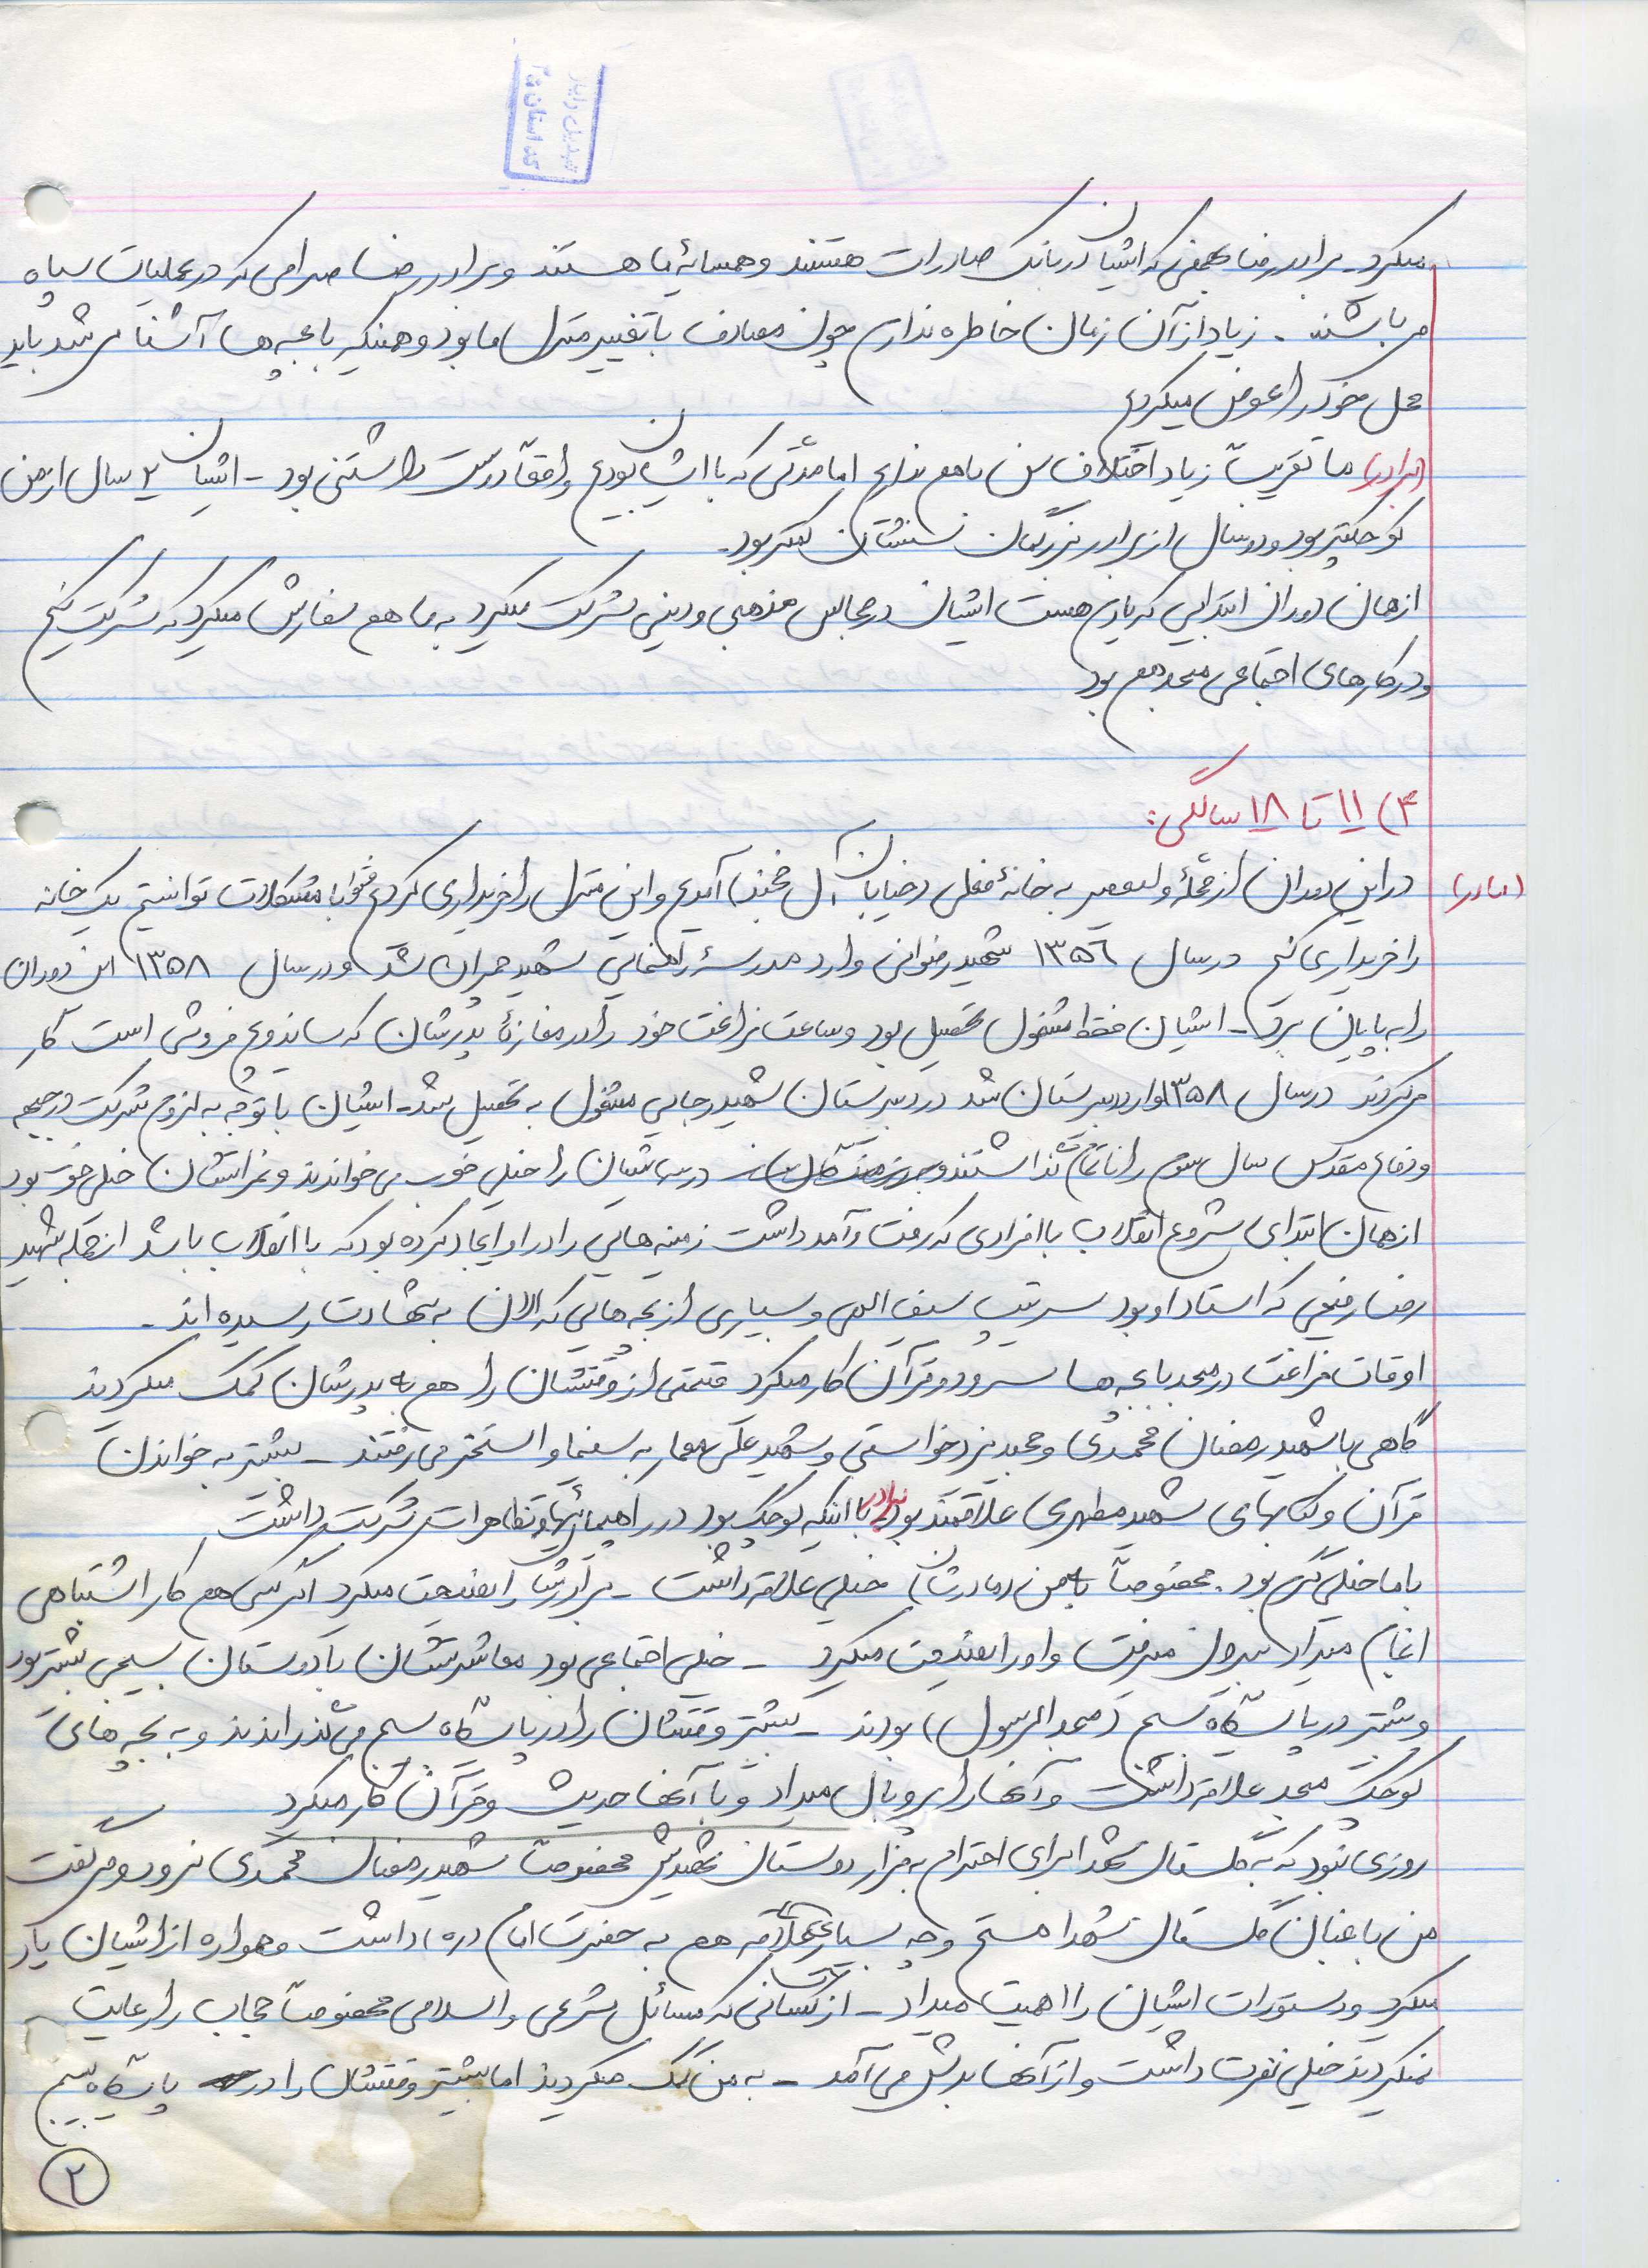 تبدیل و ایثار
کد استان ق ۳
میکرد. برادر رضا نجفی که ایشان در بانک صادرات هستند و همسایه ما هستند و برادر رضا صرامی که در عملیات سپاه
می باشند. زیاد از آن زمان خاطره ندارم چون مصادف با تغییر منزل ما بود و همینکه با بچه ها آشنا می شد باید
محل خود را عوض میکردیم
(برادر) ما تقریباً زیاد اختلاف سن با هم نداریم اما مدتی که با ایشان بودیم واقعاً دوست داشتنی بود - ایشان ۲ سال از من
کوچکتر بود و دو سال از برادر بزرگمان سنشان کمتر بود.
از همان دوران ابتدایی که یادم هست ایشان در مجالس مذهبی و دینی شرکت میکرد به ما هم سفارش میکرد که شرکت کنیم
و در کارهای اجتماعی مسجد مهم بود
۴) ۱۱ تا ۱۸ سالگی:
(مادر) در این دوران از محله ولیعصر به خانه فعلی (خیابان آل خجند) آمدیم و این منزل را خریداری کردیم با مشکلات توانستیم یک خانه
را خریداری کنیم در سال ۱۳۵۶ شهید رضوانی وارد مدرسه راهنمایی شهید چمران شد و در سال ۱۳۵۸ این دوران
را به پایان برد. ایشان فقط مشغول تحصیل بود و ساعت فراغت خود را در مغازه پدرشان که ساندویچ فروشی است کار
می کردند در سال ۱۳۵۸ وارد دبیرستان شد در دبیرستان شهید رجایی مشغول به تحصیل شد - ایشان با توجه به لزوم شرکت در جبهه
و دفاع مقدس سال سوم را ناتمام گذاشتند و درسهایشان را خیلی خوب می خواندند و نمراتشان خیلی خوب بود
از همان ابتدای شروع انقلاب با افرادی که رفت و آمد داشت زمینه هایی را در او ایجاد کرده بود که با انقلاب باشد از جمله شهید
رضا رفیعی که استاد او بود سرتیپ سیف اللهی و بسیاری از بچه هایی که الان به شهادت رسیده اند.
اوقات فراغت در مسجد با بچه ها سرود و قرآن کار میکرد قسمتی از وقتشان را هم به پدرشان کمک میکردند
گاهی با شهید رمضان محمدی و مجید یزدخواستی و شهید علی معمار به سینما و استخر می رفتند - بیشتر به خواندن
قرآن و کتابهای شهید مطهری علاقمند بود (برادر) با اینکه کوچک بود در راهپیمائیها و تظاهرات شرکت داشت
با ما خیلی گرم بود. مخصوصاً با من (مادرشان) خیلی علاقه داشت - برادرشان را نصیحت میکرد اگر کسی هم کار اشتباهی
انجام میداد سراغ میرفت و او را نصیحت میکرد - خیلی اجتماعی بود معاشرتشان با دوستان بسیجی بیشتر بود
و بیشتر در پایگاه بسیج (مسجد الرسول) بودند - بیشتر وقتشان را در پایگاه بسیج می گذراندند و به بچه های
کوچک مسجد علاقه داشت و آنها را پر و بال میداد و با آنها حدیث و قرآن کار میکرد
روزی نبود که به گلستان شهدا برای احترام به مزار دوستان شهیدش مخصوصاً شهید رمضان محمدی نرود و می گفت
من باغبان گلستان شهدا هستم و چه بسیار علاقه هم به حضرت امام (ره) داشت و همواره از ایشان یاد
میکرد و دستورات ایشان را اهمیت میداد - از کسانی که مسائل شرعی و اسلامی مخصوصاً حجاب را رعایت
نمیکردند خیلی نفرت داشت و از آنها بدش می آمد - به من کمک میکردند اما بیشتر وقتشان را در پایگاه بسیج
۲